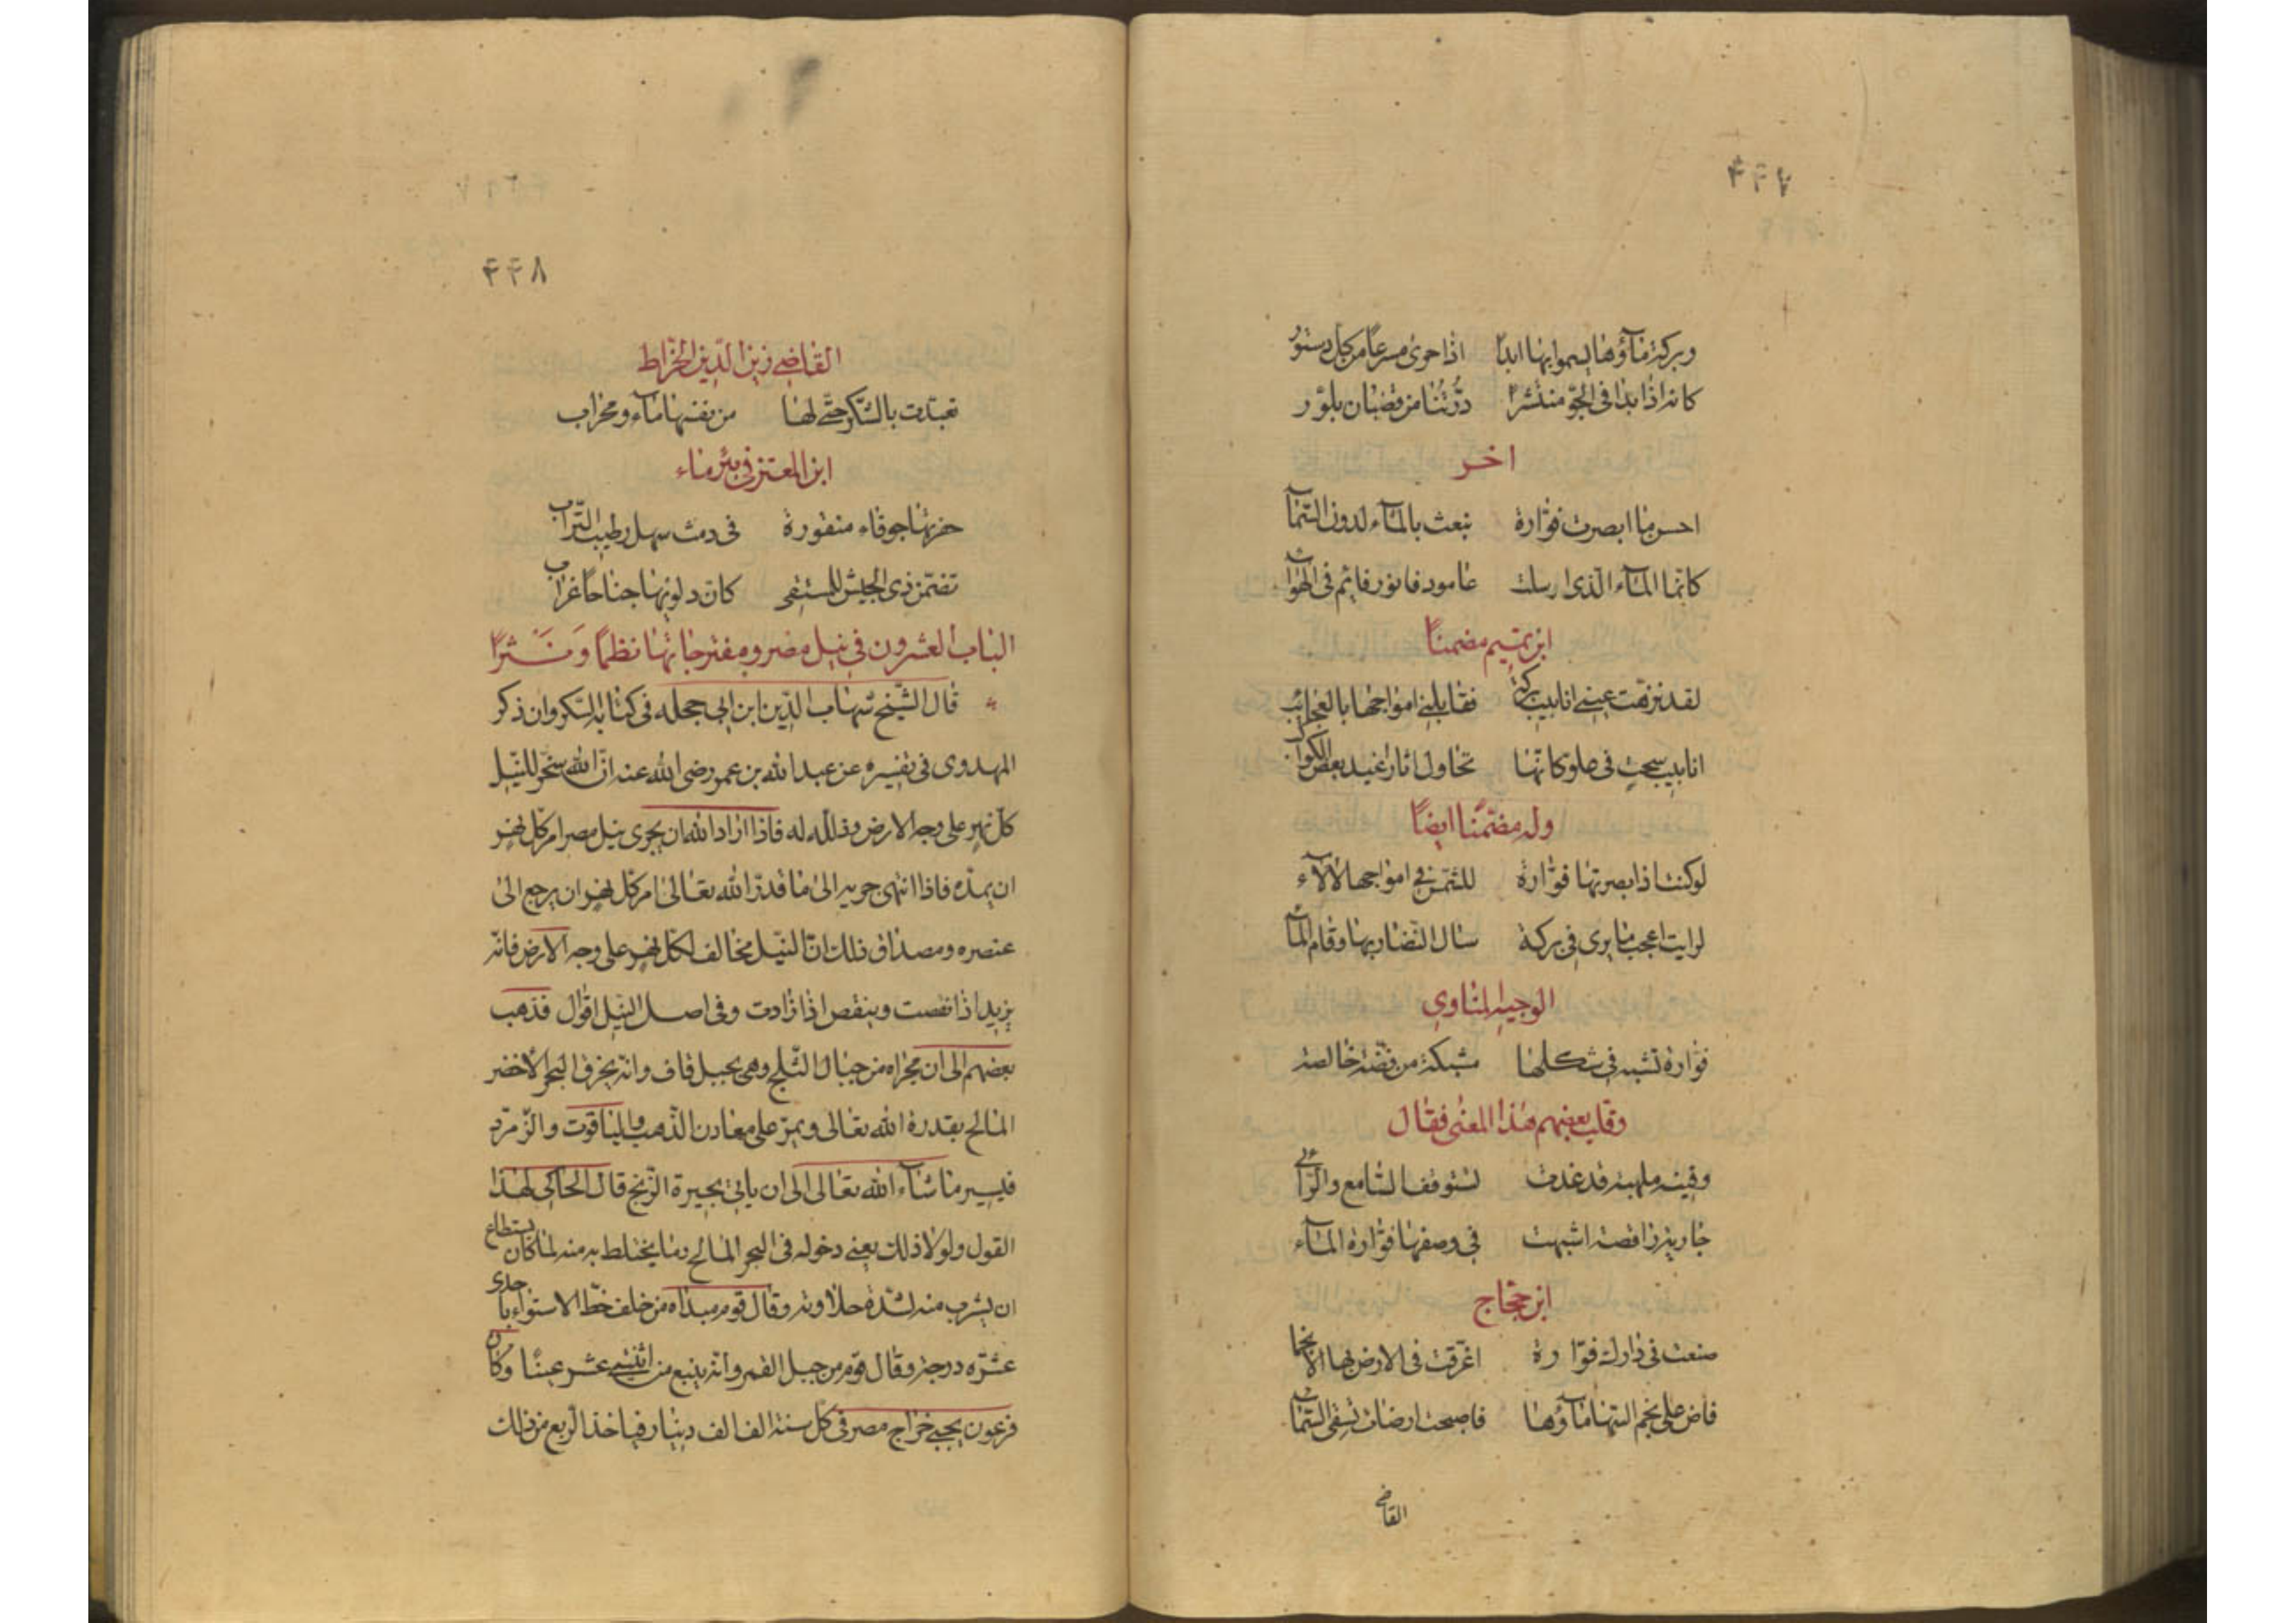 ٤٤٧
وبركة ماؤها يسموا بها ابدا اذا حوى مسرعا من كل دستور
كانه اذا بدا فى الجو منتشرا درّ تنا من قضبان بلور
اخر
احسن ما ابصرت فوارة تبعث بالماء لدون السماء
كانما الماء الذى ارسلت عامود فانور قايم فى الهواء
ابن تميم مضمنًا
لقد نزهت عينى انابيب بركة فقابلنى امواجها بالعجائب
انابيب سحت فى علو كانها تحاول ثارا عند بعض الكواكب
وله مضمّنًا ايضًا
لو كنت اذ ابصرتها فوارة للشمس فى امواجها لالآء
لرايت اعجب ما يرى فى بركة سال النضار بها وقام الماء
الوجيه المناوى
فوارة تشبه فى شكلها مشبكة من فضة خالصة
وقلب بعضهم هذا المعنى فقال
وقينة ملهية قد غدت تستوقف السامع والرائى
جارية راقصة اشبهت فى وصفها فوارة الماء
ابن حجاج
صنعت فى دارك فوارة اغرقت فى الارض بها الانجما
فاض على نجم السها ماؤها فاصبحت ارضك تسقى السماء
القاضى
٤٤٨
القاضى زين الدين الخراط
تعبدت بالشكر حتى لها من نفسها ماء ومحراب
ابن المعتز فى بئر ماء
حفرتها جوفاء منقورة فى دمث سهل رطيب التراب
تضمن ذى الجيش للمستقى كان دلويها جناحا غراب
الباب العشرون فى نيل مصر ومفترجاتها نظمًا وَنَثرًا
قال الشيخ شهاب الدين ابن ابى حجله فى كتابه السكردان ذكر
المهدوى فى تفسيره عن عبد الله بن عمر رضى الله عنه انّ الله سخر للنيل
كل نهر على وجه الارض وذلله له فاذا اراد الله ان يجرى نيل مصر امر كل نهر
ان يمدّه فاذا انتهى جريه الى ما قدر الله تعالى امر كل نهر ان يرجع الى
عنصره ومصداق ذلك انّ النيل مخالف لكل نهر على وجه الارض فانه
يزيد اذا نقصت وينقص اذا زادت وفى اصل النيل اقوال فذهب
بعضهم الى ان مجراه من جبال الثلج وهى بجبل قاف وانه يخرق البحر الاخضر
المالح بقدرة الله تعالى ويمرّ على معادن الذهب والياقوت والزمرد
فيسير ما شاء الله تعالى الى ان ياتى بحيرة الزنج قال الحاكى لهذا
القول ولولا ذلك يعنى دخوله فى البحر المالح وما يختلط به منه لما كان يستطاع
ان يشرب منه لشدة حلاوته وقال قوم مبداه من خلف خط الاستواء باحدى
عشره درجة وقال قوم من جبل القمر وانه ينبع من اثنتى عشر عينًا وكان
فرعون يجبى خراج مصر فى كل سنة الف الف دينار فياخذ الربع من ذلك